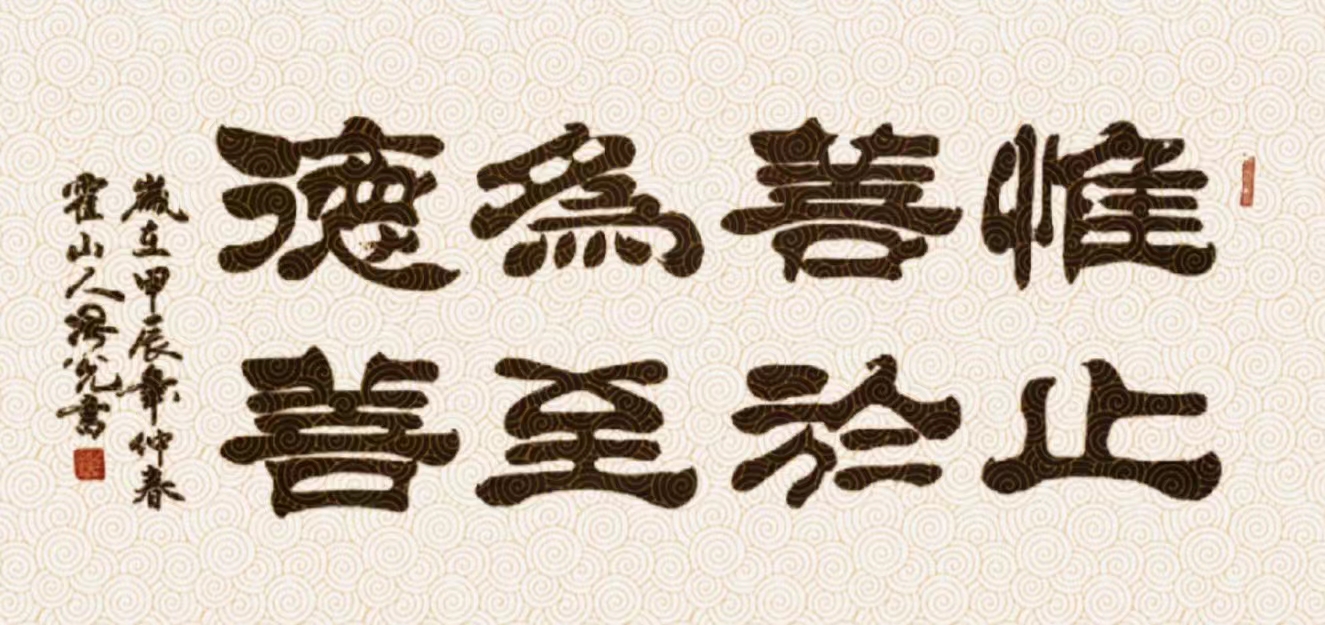 惟善為德
止於至善
歲在甲辰年仲春
霍山人書